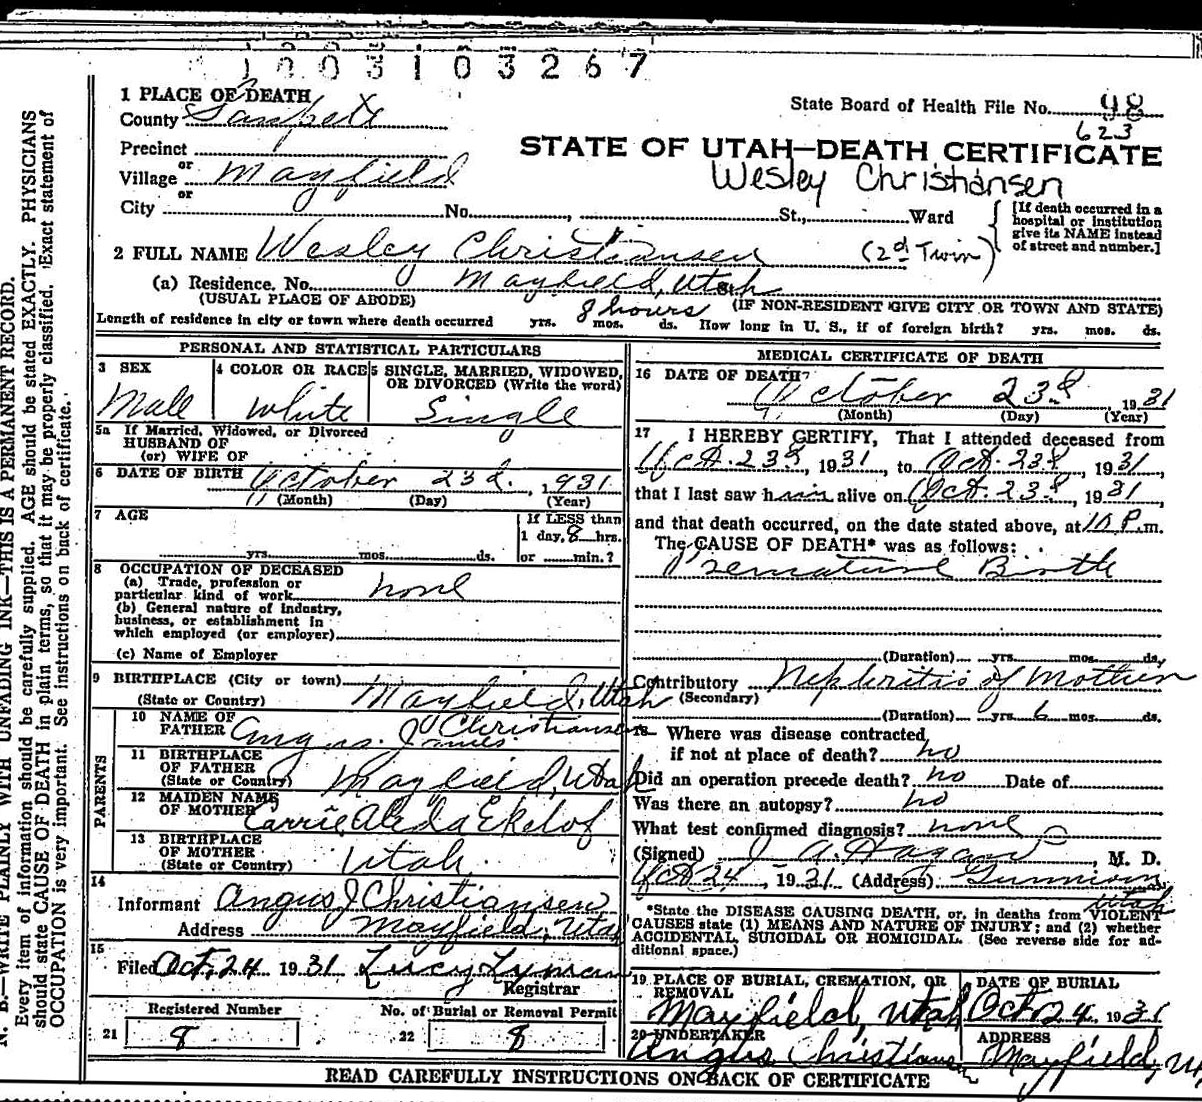 1003103267
1 PLACE OF DEATH
County Sanpete
State Board of Health File No. 98
623
Precinct
or
Village Mayfield
or
City No. , St., Ward
STATE OF UTAH—DEATH CERTIFICATE
Wesley Christiansen
{ [If death occurred in a
hospital or institution
give its NAME instead
of street and number.]
2 FULL NAME Wesley Christiansen (2d Twin)
(a) Residence. No. Mayfield, Utah St.
(USUAL PLACE OF ABODE) (IF NON-RESIDENT GIVE CITY OR TOWN AND STATE)
8 hours
Length of residence in city or town where death occurred yrs. mos. ds. How long in U. S., if of foreign birth? yrs. mos. ds.
PERSONAL AND STATISTICAL PARTICULARS
3 SEX
Male
4 COLOR OR RACE
White
5 SINGLE, MARRIED, WIDOWED,
OR DIVORCED (Write the word)
Single
5a If Married, Widowed, or Divorced
HUSBAND OF
(or) WIFE OF
6 DATE OF BIRTH October 23d. , 1931
(Month) (Day) (Year)
7 AGE
yrs. mos. ds.
If LESS than
1 day, 8 hrs.
or min.?
8 OCCUPATION OF DECEASED
(a) Trade, profession or
particular kind of work none
(b) General nature of industry,
business, or establishment in
which employed (or employer)
(c) Name of Employer
9 BIRTHPLACE (City or town)
(State or Country) Mayfield, Utah
PARENTS
10 NAME OF
FATHER Angus James Christiansen
11 BIRTHPLACE
OF FATHER
(State or Country) Mayfield, Utah
12 MAIDEN NAME
OF MOTHER Carrie Aleda Ekelof
13 BIRTHPLACE
OF MOTHER
(State or Country) Utah.
14
Informant Angus J Christiansen
Address Mayfield, Utah
15
Filed Oct. 24 1931 Lucy Lyman
Registrar
Registered Number
21 8
No. of Burial or Removal Permit
22 8
MEDICAL CERTIFICATE OF DEATH
16 DATE OF DEATH
October 23d 1931
(Month) (Day) (Year)
17 I HEREBY CERTIFY, That I attended deceased from
Oct. 23d, 1931, to Oct. 23d, 1931,
that I last saw him alive on Oct. 23d, 1931
and that death occurred, on the date stated above, at 10 P.m.
The CAUSE OF DEATH* was as follows:
Premature Birth
(Duration) yrs. mos. ds.
Contributory Nephritis of Mother
(Secondary)
(Duration) yrs. 6 mos. ds.
18 Where was disease contracted
if not at place of death? no
Did an operation precede death? no Date of
Was there an autopsy? no
What test confirmed diagnosis? none
(Signed) J. A. Hagan, M. D.
Oct 24, 1931 (Address) Gunnison,
Utah
*State the DISEASE CAUSING DEATH, or, in deaths from VIOLENT
CAUSES state (1) MEANS AND NATURE OF INJURY; and (2) whether
ACCIDENTAL, SUICIDAL OR HOMICIDAL. (See reverse side for ad-
ditional space.)
19 PLACE OF BURIAL, CREMATION, OR
REMOVAL
Mayfield, Utah
DATE OF BURIAL
Oct 24 1931
20 UNDERTAKER
Angus Christiansen
ADDRESS
Mayfield, Ut
READ CAREFULLY INSTRUCTIONS ON BACK OF CERTIFICATE
N. B.—WRITE PLAINLY WITH UNFADING INK—THIS IS A PERMANENT RECORD.
Every item of information should be carefully supplied. AGE should be stated EXACTLY. PHYSICIANS
should state CAUSE OF DEATH in plain terms, so that it may be properly classified. Exact statement of
OCCUPATION is very important. See instructions on back of certificate.